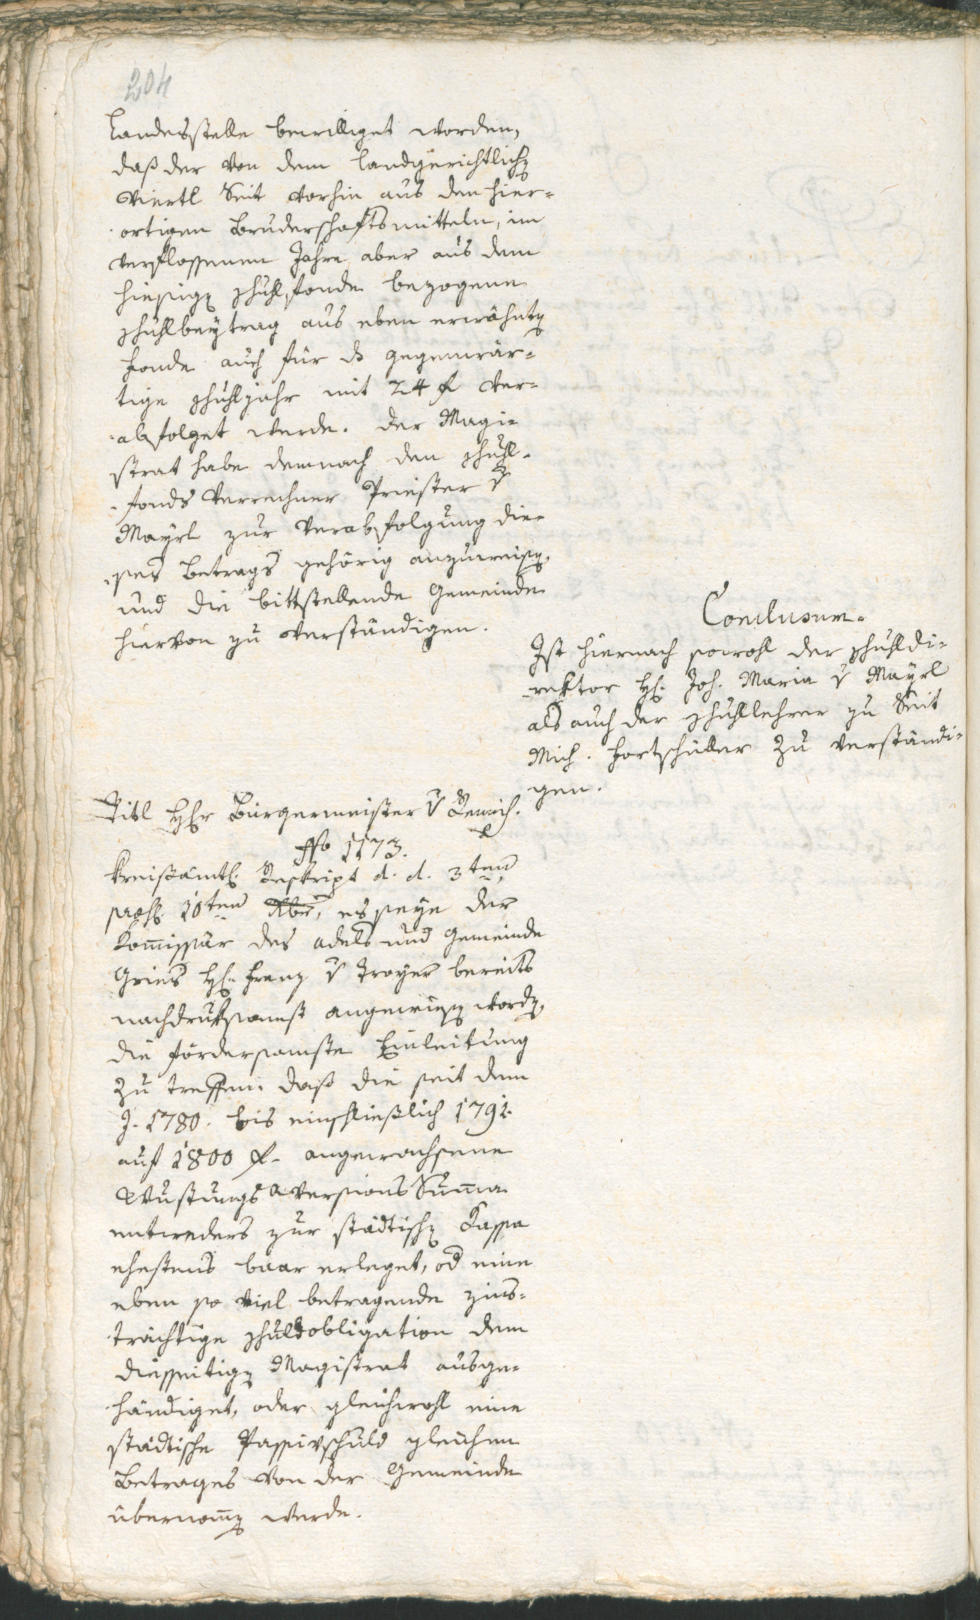 204
Landesstelle bewilliget worden,
daß der von dem Landgerichtlich
Viertl Seit vorhin aus den hier-
ortigen Bruderschaftsmitteln, im
verflossenen Jahre aber aus dem
hiesig Schuhlfonde bezogene
Schuhlbeytrag aus eben erwähnt
Fonde auch für d gegenwär-
tige Schuhljahr mit 24 f ver-
abfolget werde. Der Magi-
strat habe demnach den Schuhl-
fonds Verrechner Priester v
Mayrl zur Verabfolgung die-
ses Betrags gehörig anzuweis,
und die bittstellende Gemeinde
hievon zu verständigen.
Conclusum.
Ist hiernach sowohl der Schuhldi-
rektor H. Joh. Maria v Mayrl
als auch der Schuhllehrer zu Seit
Mich. Fortschüller zu verständi-
gen.
Titl HHr Bürgermeister v
No 1173.
Kreißämtl. Reskript d. d. 3ten
praes. 10ten Xber, es seye der
Kommissär des Adels und Gemeinde
Gries H. Franz v Troyer bereits
nachdruksamst angewies word,
die fördersamste Einleitung
zu treffen: daß die seit dem
J. 1780. bis einschließlich 1791.
auf 1800 f. angewachsene
Wustungs Aversions Summa
entweders zur städtisch Kassa
ehestens baar erleget, od eine
eben so viel betragende zins-
trächtige Schuldobligation dem
diesseitig Magistrat ausge-
händiget, oder gleichwohl eine
städtische Passivschuld gleichen
Betrages von der Gemeinde
übernom werde.